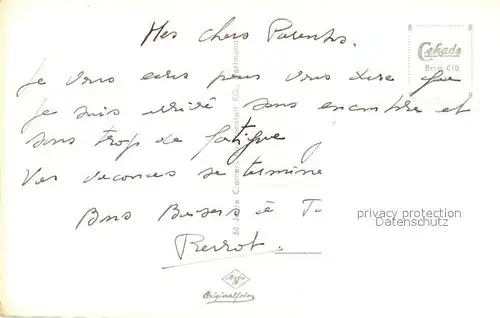 Mes chers Parents.
Je vous ecris pour vous dire que
je suis arrivé sans encombre et
sans trop de fatigue
Vos vacances se termine
Bons Baisers à T
Pierrot.
Cekade
60 Jahre Cramers Kunstanstalt KG., Dortmund
privacy protection
Datenschutz
Agfa
Originalfoto